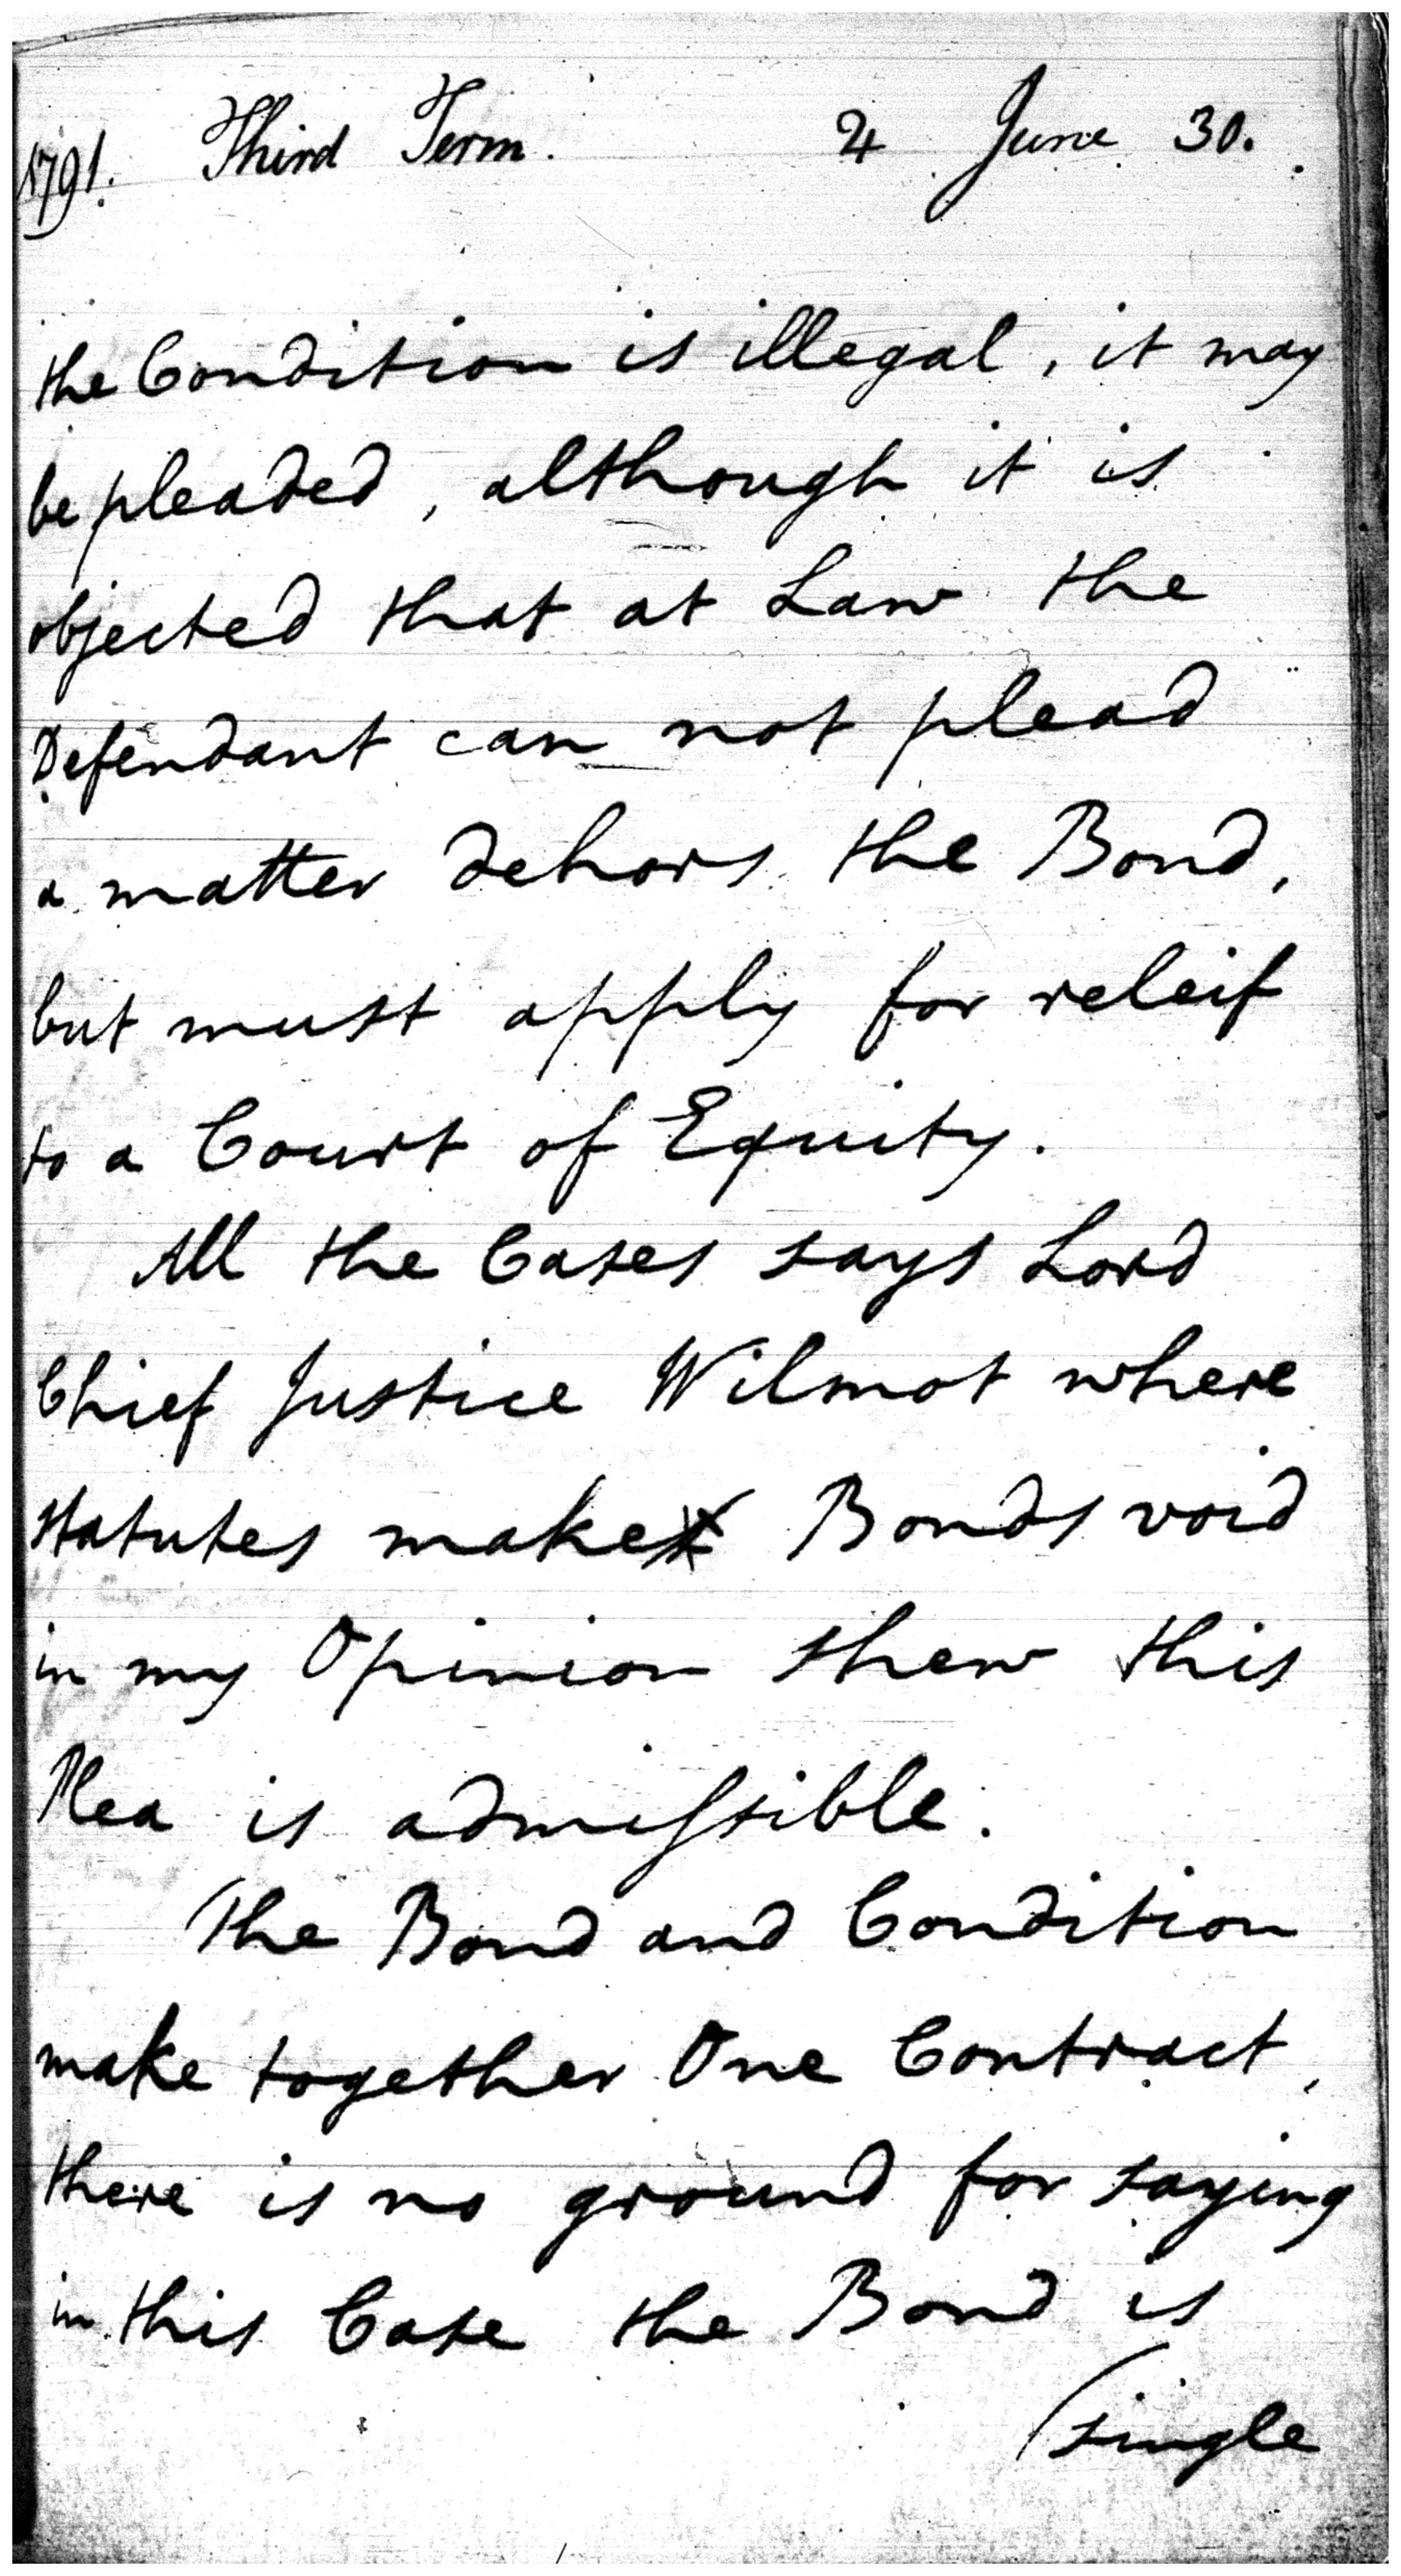 1791. Third Term. 24 June 30.
the Condition is illegal, it may
be pleaded, although it is
objected that at Law the
Defendant can not plead
a matter dehors the Bond,
but must apply for releif
to a Court of Equity.
All the Cases says Lord
Chief Justice Wilmot where
statutes make Bonds void
in my Opinion shew this
Plea is admiſsible.
The Bond and Condition
make together One Contract,
there is no ground for saying
in this Case the Bond is
(single